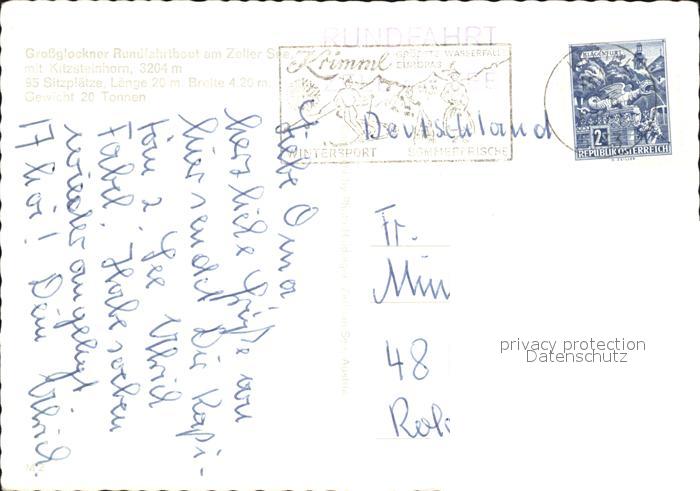 Großglockner Rundfahrtboot am Zeller See
mit Kitzsteinhorn, 3204 m
95 Sitzplätze, Länge 20 m, Breite 4,20 m,
Gewicht 20 Tonnen
RUNDFAHRT
Krimml
GRÖSSTE WASSERFÄLLE
EUROPAS
WINTERSPORT SOMMERFRISCHE
KLAGENFURT
2S
REPUBLIK ÖSTERREICH
Liebe Oma
herzliche Grüße von
hier sendet Dir Kapi-
tän z. See Ulrich
Fabel. Habe soeben
wieder angelegt
17 hier! Dein Ulrich.
Deutschland
Fr.
Min
48
Rol
M 2
privacy protection
Datenschutz